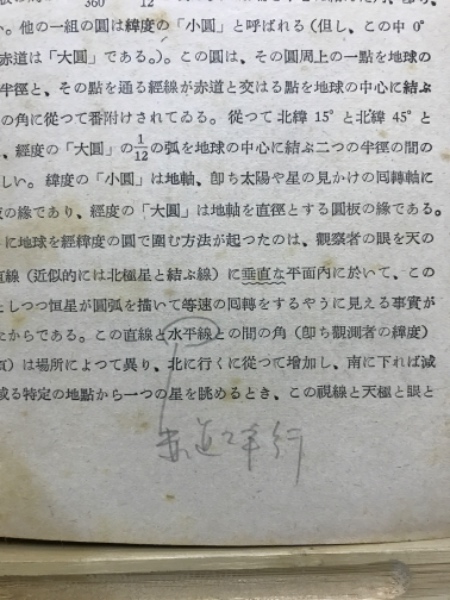 360 12
他の一組の圓は緯度の「小圓」と呼ばれる（但し、この中 0°
赤道は「大圓」である。）。この圓は、その圓周上の一點を地球の
半徑と、その點を通る經線が赤道と交はる點を地球の中心に結ぶ
の角に從つて番附けされてゐる。從つて北緯 15° と北緯 45° と
、經度の「大圓」の1/12の弧を地球の中心に結ぶ二つの半徑の間の
しい。緯度の「小圓」は地軸、卽ち太陽や星の見かけの囘轉軸に
の緣であり、經度の「大圓」は地軸を直徑とする圓板の緣である。
に地球を經緯度の圓で圍む方法が起つたのは、觀察者の眼を天の
直線（近似的には北極星と結ぶ線）に垂直な平面內に於いて、この
しつつ恒星が圓弧を描いて等速の囘轉をするやうに見える事實が
たからである。この直線と水平線との間の角（卽ち觀測者の緯度）
）は場所によつて異り、北に行くに從つて增加し、南に下れば減
或る特定の地點から一つの星を眺めるとき、この視線と天極と眼と
赤道